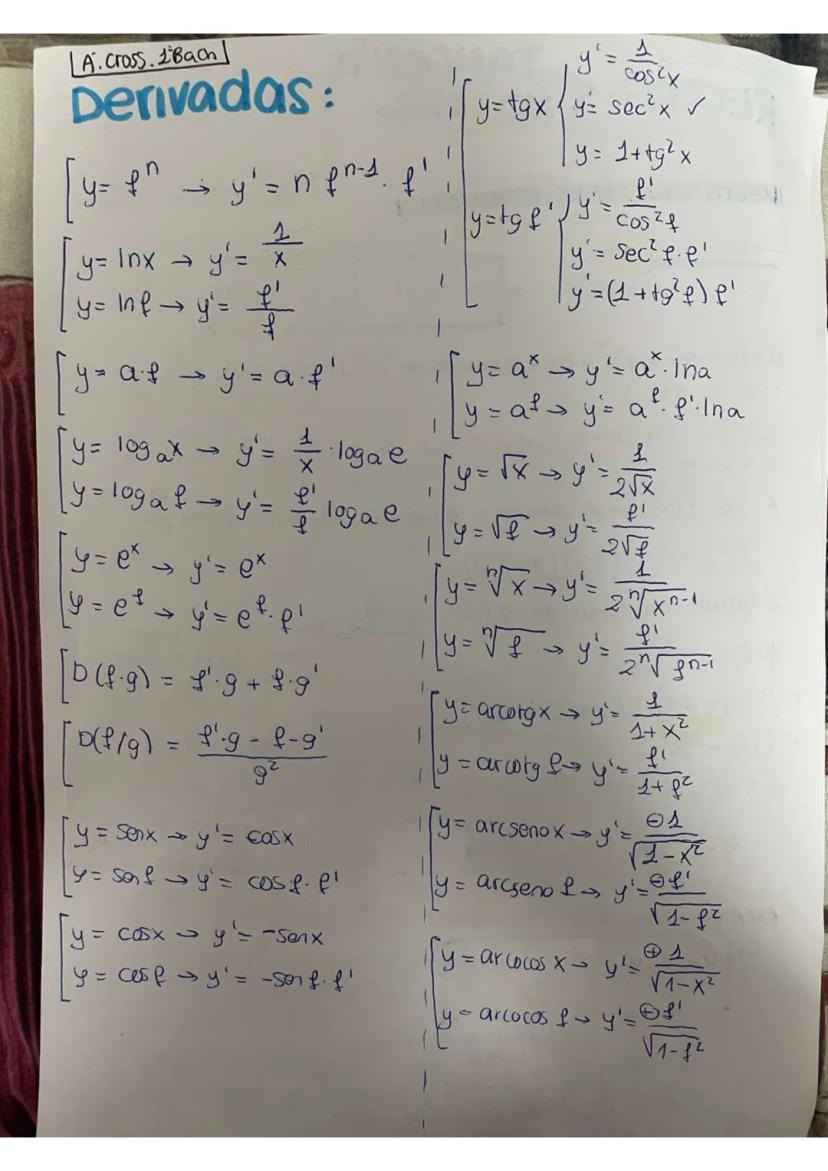 A. Cross. 1ºBach
Derivadas:
y= fⁿ → y' = n fⁿ⁻¹ · f'
y= lnx → y' = 1/x
y= lnf → y' = f'/f
y= a·f → y' = a·f'
y= logₐx → y' = 1/x · logₐe
y= logₐf → y' = f'/f logₐe
y= eˣ → y' = eˣ
y= e^f → y' = e^f · f'
D(f·g) = f'·g + f·g'
D(f/g) = (f'·g - f-g')/g²
y= senx → y' = cosx
y= senf → y' = cosf·f'
y= cosx → y' = -senx
y= cosf → y' = -senf·f'
y= tgx
y' = 1/cos²x
y' = sec²x ✓
y = 1+tg²x
y= tgf'
y' = f'/cos²f
y' = sec²f·f'
y' = (1+tg²f) f'
y= aˣ → y' = aˣ·lna
y= a^f → y' = a^f·f'·lna
y= √x → y' = 1/(2√x)
y= √f → y' = f'/(2√f)
y= ⁿ√x → y' = 1/(2 ⁿ√(xⁿ⁻¹))
y= ⁿ√f → y' = f'/(2 ⁿ√(fⁿ⁻¹))
y= arcotgx → y' = 1/(1+x²)
y= arcotg f → y' = f'/(1+f²)
y= arcsenox → y' = ⊖1/√(1-x²)
y= arcseno f → y' = ⊕f'/√(1-f²)
y= arcocos x → y' = ⊕1/√(1-x²)
y= arcocos f → y' = ⊕f'/√(1-f²)